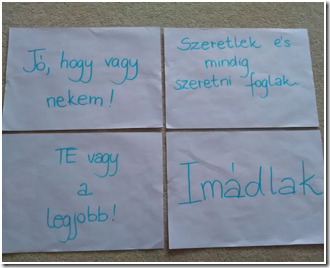 Jó, hogy vagy
nekem!
Szeretlek és
mindig
szeretni foglak.
TE vagy
a
legjobb!
Imádlak